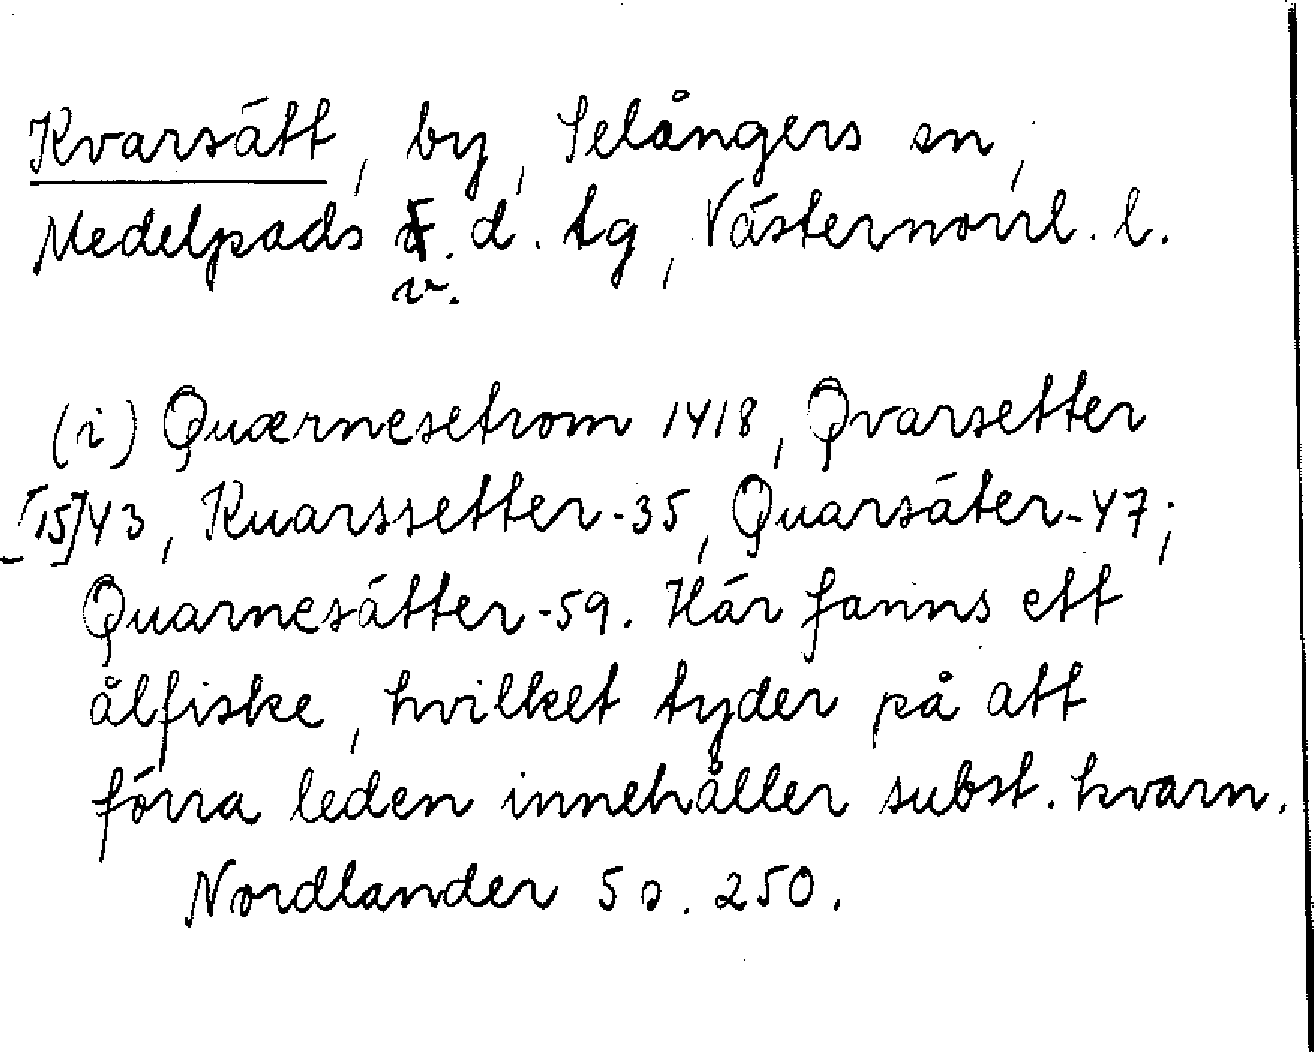 Kvarsätt, by, Selångers sn,
Medelpads v. d. tg, Västernorrl. l.
(i) Quærnesetrom 1418, Qvarsetter
[15]43, Kuarssetter -35, Quarsäter -47;
Quarnesätter -59. Här fanns ett
ålfiske, hvilket tyder på att
förra leden innehåller subst. kvarn.
Nordlander 5 s. 250.